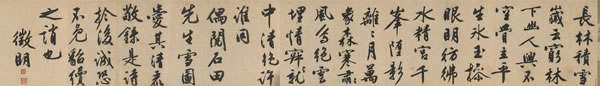 長林積雪
歲云窮林
下幽人興不
空曾立平
生氷玉
眼明彷彿
水精宮千
峯彩
離離月萬
象森寒肅
風絕雪
埋情
中清絕許
誰同
偶閱石田
先生雪圖
愛其清
敬錄是詩
於後誠恐
不免貂續
之誚也
徵明